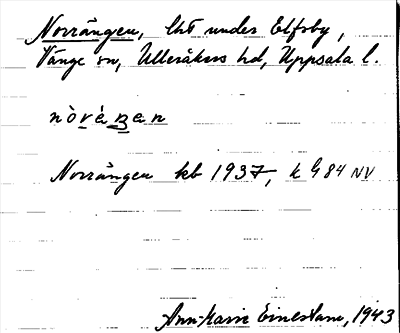 Norrängen, lht under Elfsby,
Vänge sn, Ulleråkers hd, Uppsala l.
Norrängen kb 1937, k G84 NV
Ann-Marie Einestam, 1943